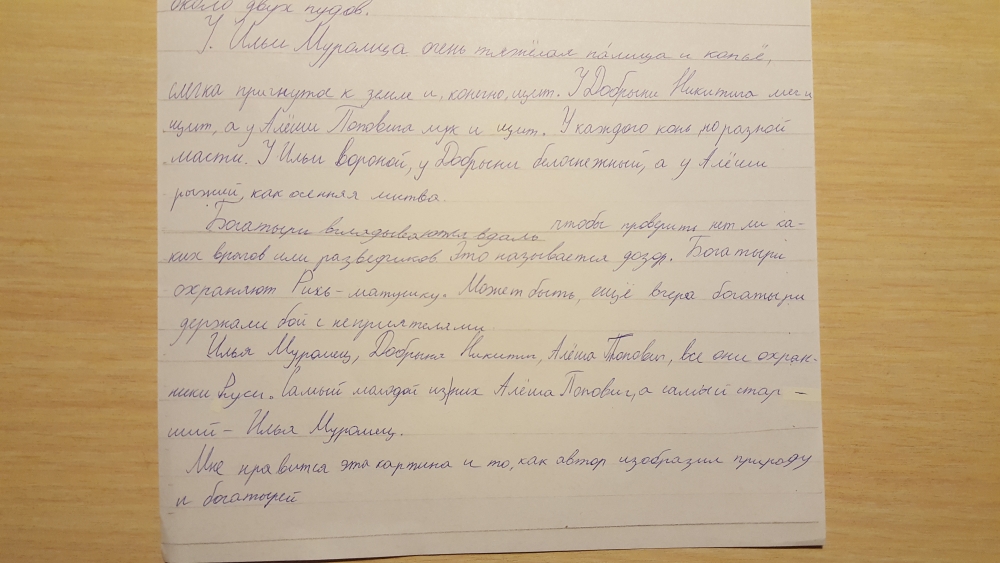 около двух пудов.
У Ильи Муромца очень тяжёлая па́лица и копьё,
слегка пригнутое к земле и, конечно, щит. У Добрыни Никитича меч и
щит, а у Алёши Поповича лук и щит. У каждого конь, но разной
масти. У Ильи вороной, у Добрыни белоснежный, а у Алёши
рыжий, как осенняя листва.
Богатыри вглядываются вдаль чтобы проверить нет ли ка-
ких врагов или разведчиков Это называется дозор. Богатыри
охраняют Русь-матушку. Может быть, ещё вчера богатыри
держали бой с неприятелями
Илья Муромец, Добрыня Никитич, Алёша Попович, все они охран-
ники Руси. Самый молодой из них Алёша Попович, а самый стар-
ший - Илья Муромец.
Мне нравится эта картина и то, как автор изобразил природу
и богатырей